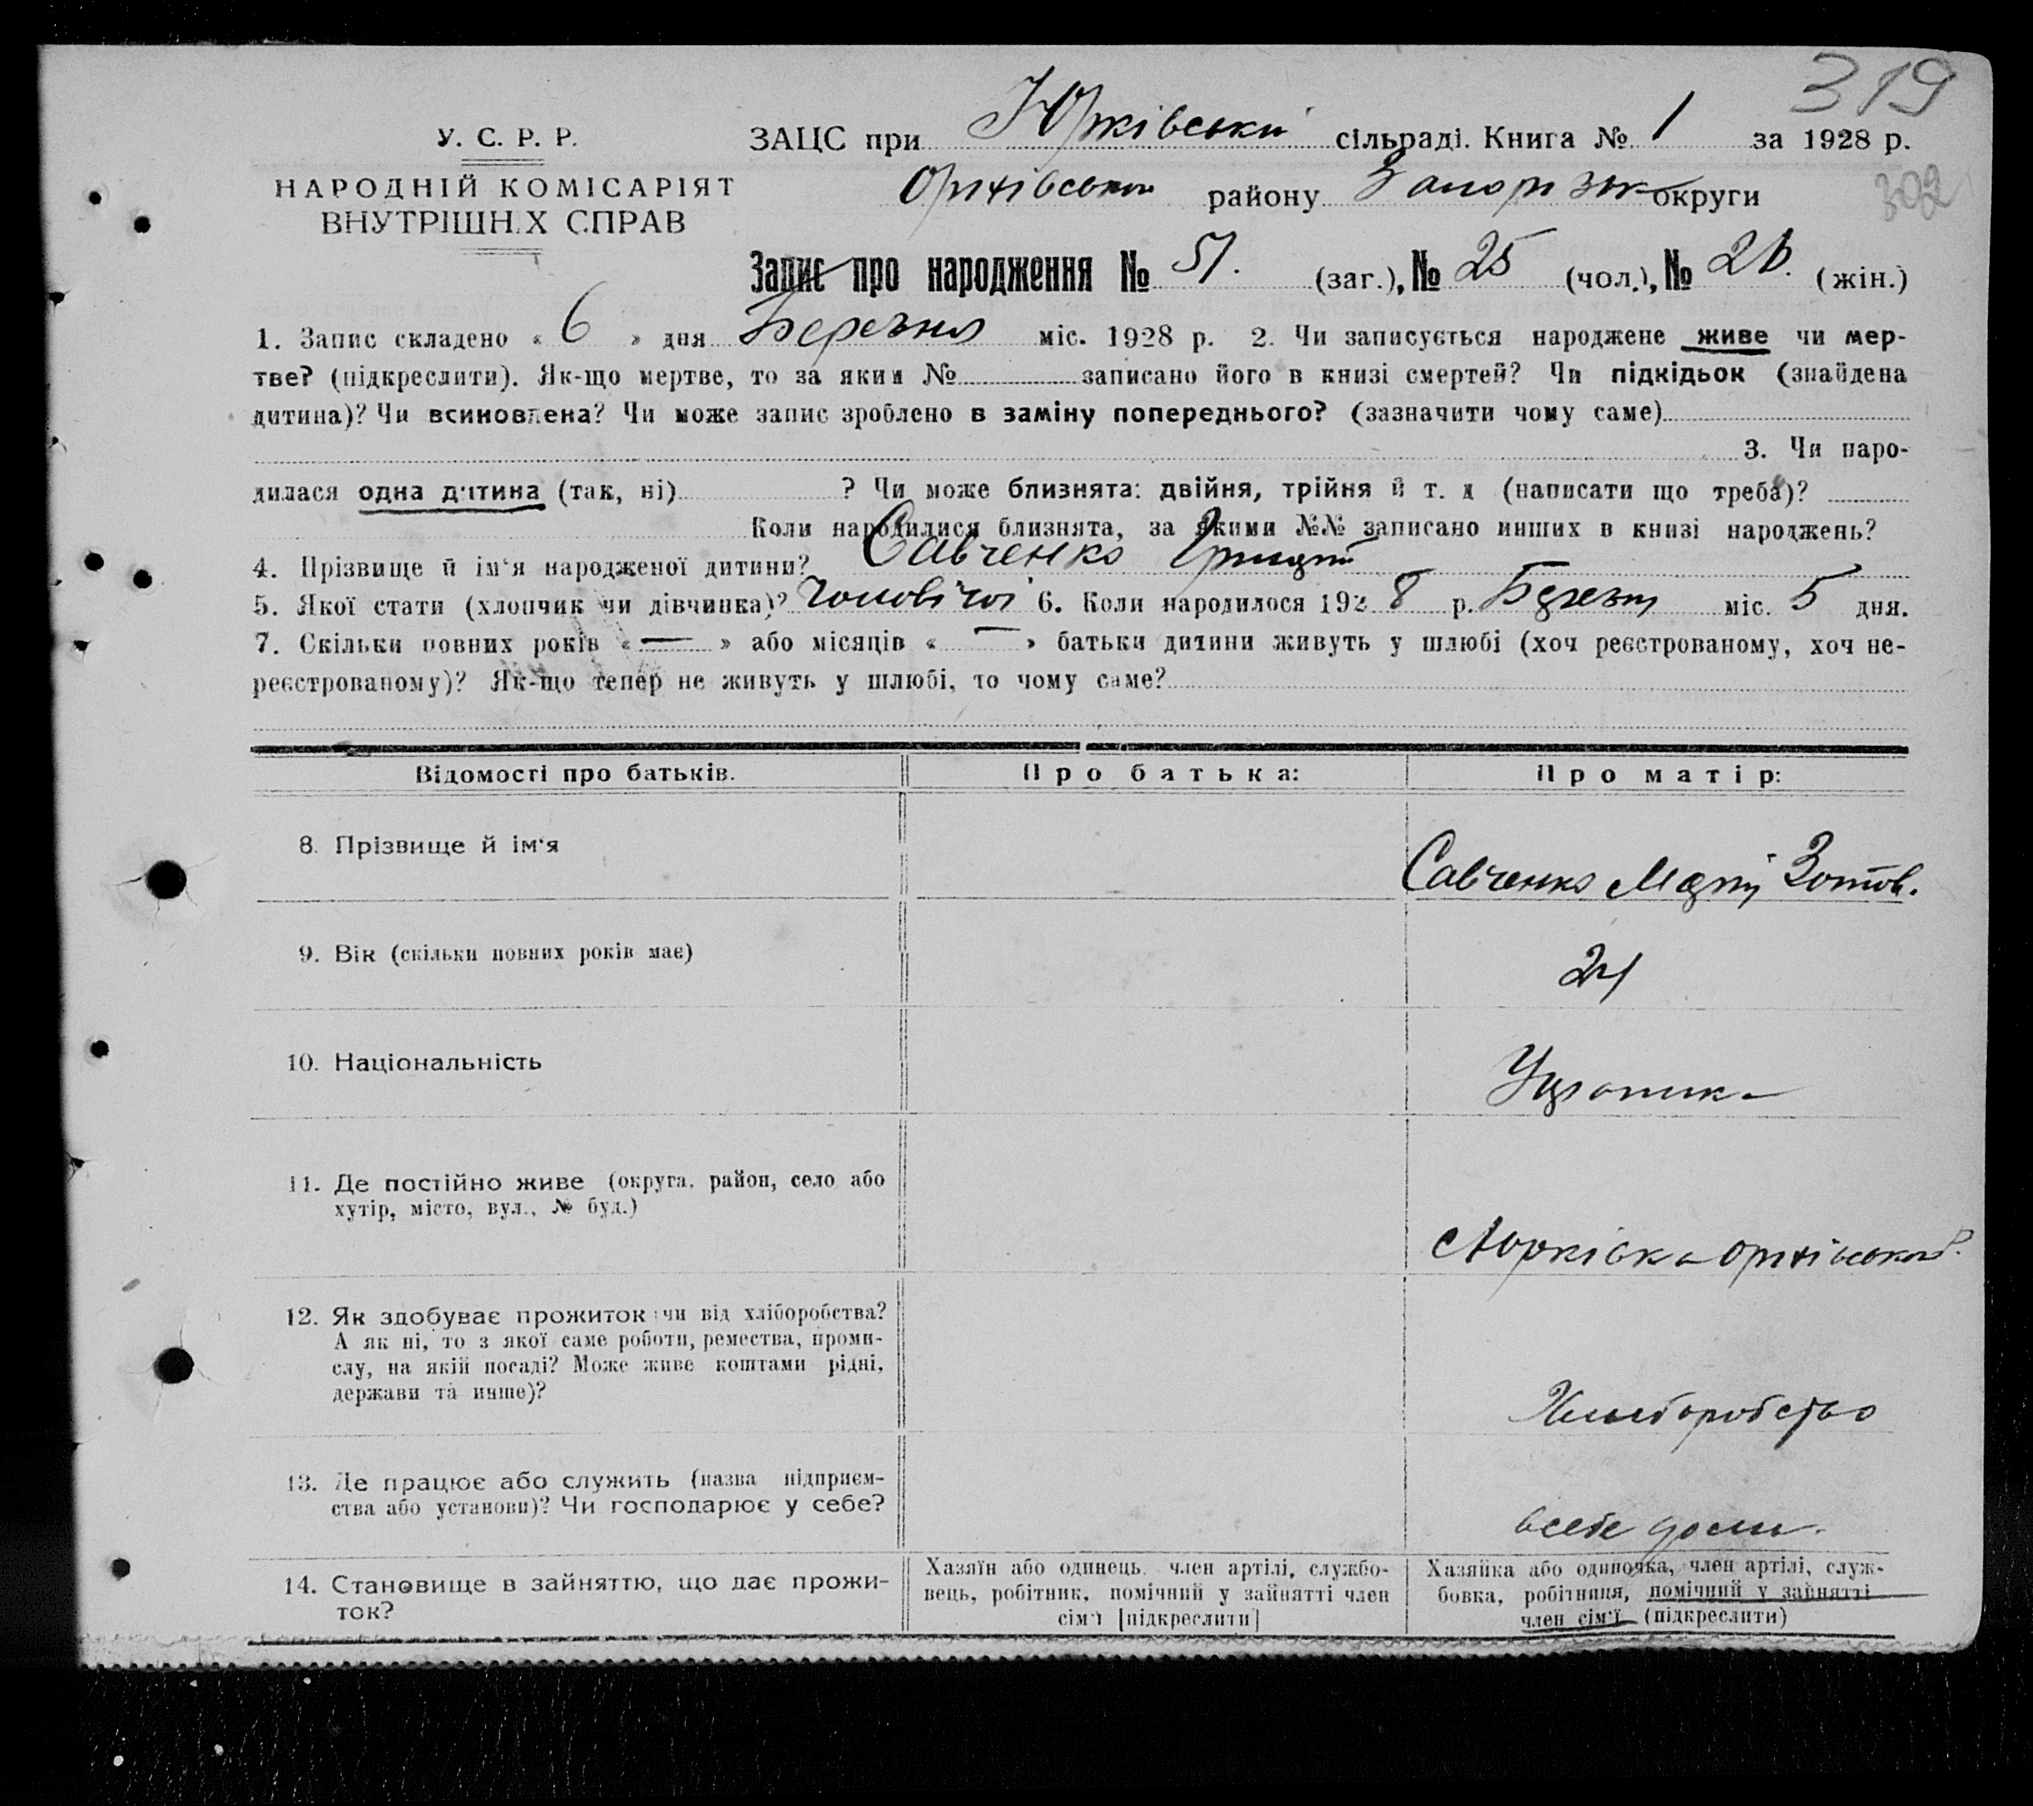 319
У. С. Р. Р.
ЗАЦС при Юрківській сільраді. Книга № 1 за 1928 р.
302
НАРОДНІЙ КОМІСАРІЯТ
Оріхівського району Запорізьк округи
ВНУТРІШН.Х СПРАВ
Запис про народження № 51. (заг.), № 25 (чол.), № 26. (жін.)
1. Запис складено « 6 » дня Березня міс. 1928 р. 2. Чи записується народжене живе чи мер-
тве? (підкреслити). Як-що мертве, то за яким № записано його в книзі смертей? Чи підкідьок (знайдена
дитина)? Чи всиновлена? Чи може запис зроблено в заміну попереднього? (зазначити чому саме)
3. Чи наро-
дилася одна дитина (так, ні) ? Чи може близнята: двійня, трійня й т. д (написати що треба)?
Коли народилися близнята, за якими №№ записано инших в книзі народжень?
4. Прізвище й ім‘я народженої дитини? Савченко
5. Якої стати (хлопчик чи дівчинка)? Чоловічої 6. Коли народилося 192 8 р. Березня міс. 5 дня.
7. Скільки повних років « — » або місяців « — » батьки дитини живуть у шлюбі (хоч реєстрованому, хоч не-
реєстрованому)? Як-що тепер не живуть у шлюбі, то чому саме?
Відомості про батьків.
Про батька:
Про матір:
8. Прізвище й ім‘я
Савченко Марія Зотов.
9. Вік (скільки повних років має)
24
10. Національність
Україника
11. Де постійно живе (округа, район, село або
хутір, місто, вул., № буд.)
с Юрківка Оріхівського Р.
12. Як здобуває прожиток чи від хліборобства?
А як ні, то з якої саме роботи, ремества, проми-
слу, на якій посаді? Може живе коштами рідні,
держави та инше)?
Хліборобство
13. Де працює або служить (назва підприєм-
ства або установи)? Чи господарює у себе?
всебе дома.
14. Становище в зайняттю, що дає прожи-
ток?
Хазяїн або одинець, член артілі, службо-
вець, робітник, помічний у зайнятті член
сім‘ї [підкреслити]
Хазяйка або одиночка, член артілі, служ-
бовка, робітниця, помічний у зайнятті
член сім‘ї (підкреслити)